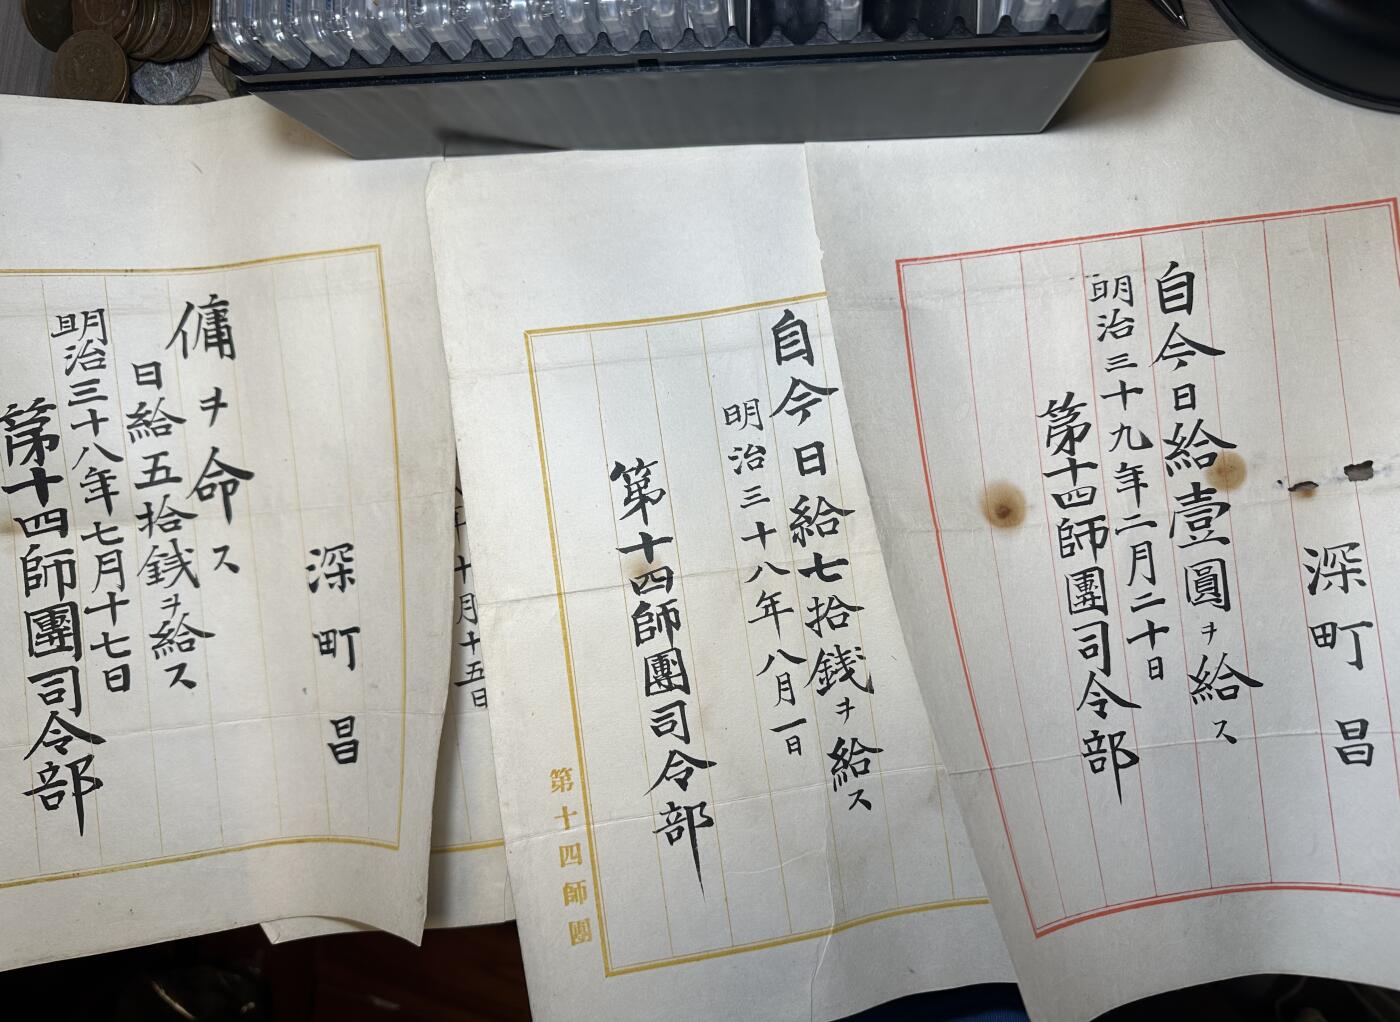 深町昌
自今日給壹圓ヲ給ス
明治三十九年二月二十日
第十四師團司令部
自今日給七拾銭ヲ給ス
明治三十八年八月一日
第十四師團司令部
第十四師團
十月十五日
深町昌
傭ヲ命ス
日給五拾銭ヲ給ス
明治三十八年七月十七日
第十四師團司令部